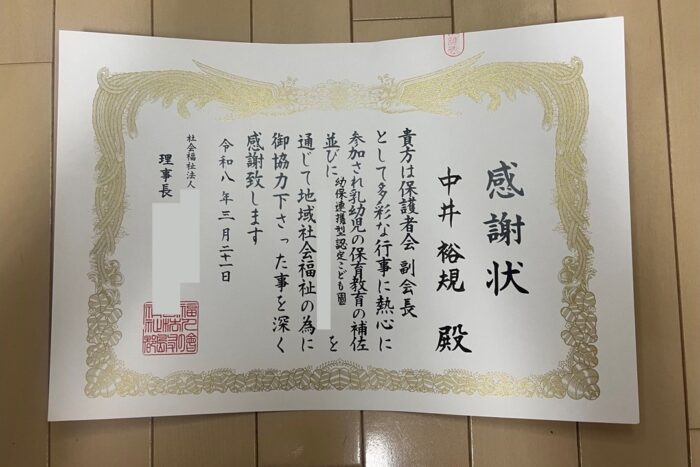 感謝状
中井裕規 殿
貴方は保護者会 副会長
として多彩な行事に熱心に
参加され乳幼児の保育教育の補佐
並びに 幼保連携型認定こども園 を
通じて地域社会福祉の為に
御協力下さった事を深く
感謝致します
令和八年三月二十一日
社会福祉法人
理事長